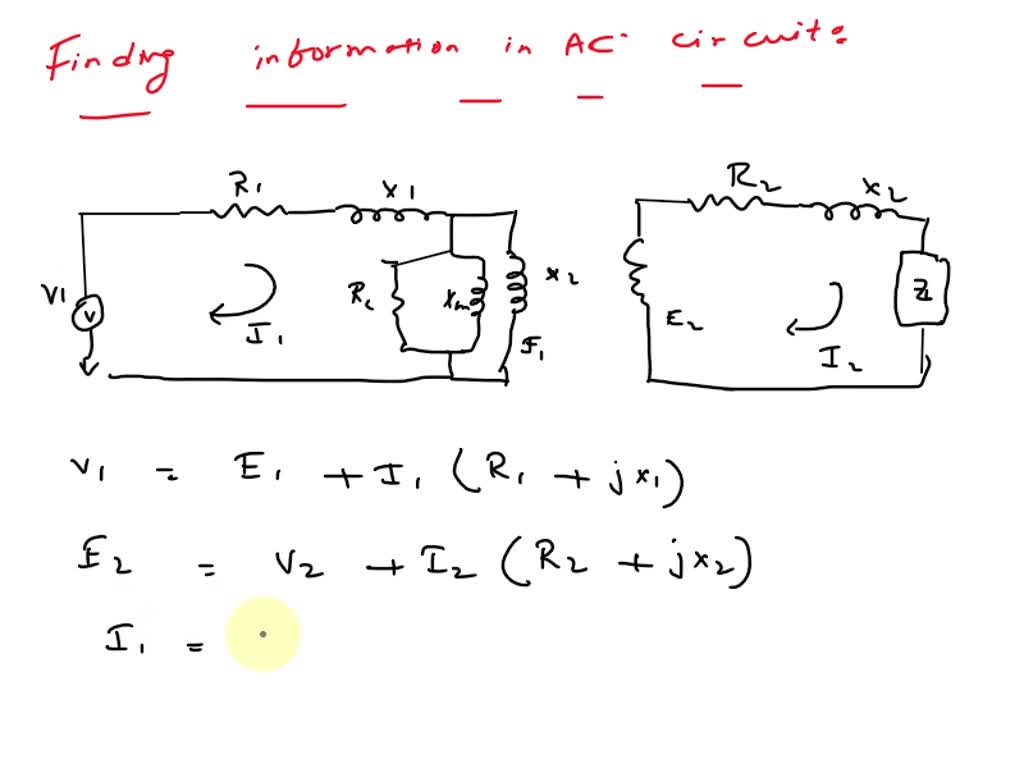 Finding information in AC circuits
R1 X1
R2 X2
V1 V I1 Rc Xm X2 E1
E2 I2 ZL
V1 = E1 + I1 (R1 + jx1)
E2 = V2 + I2 (R2 + jx2)
I1 =